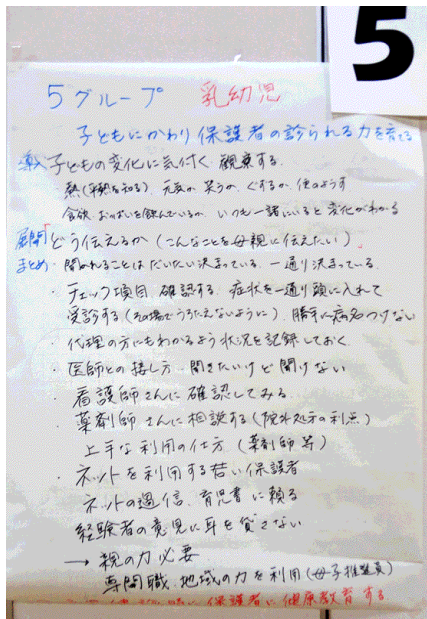 5
5グループ 乳幼児
子どもにかわり保護者の診られる力を育てる
導入 子どもの変化に気付く、観察する。
熱(平熱を知る)、元気か、笑うか、ぐずるか、便のようす
食欲、おっぱいを飲んでいるか、いつも一緒にいると変化がわかる
展開 「どう伝えるか(こんなことを母親に伝えたい)」
まとめ ・聞かれることはだいたい決まっている、一通り決まっている。
・チェック項目、確認する、症状を一通り頭に入れて
受診する(その場でうろたえないように)、勝手に病名つけない
・代理の方にもわかるよう状況を記録しておく
・医師との接し方、聞きたいけど聞けない
・看護師さんに確認してみる
・薬剤師さんに相談する(院外処方の利点)
上手な利用の仕方(薬剤師等)
・ネットを利用する若い保護者
ネットの過信、育児書に頼る
経験者の意見に耳を貸さない
→ 親の力必要
専門職、地域の力を利用(母子推進員)
保護者に健康教育する